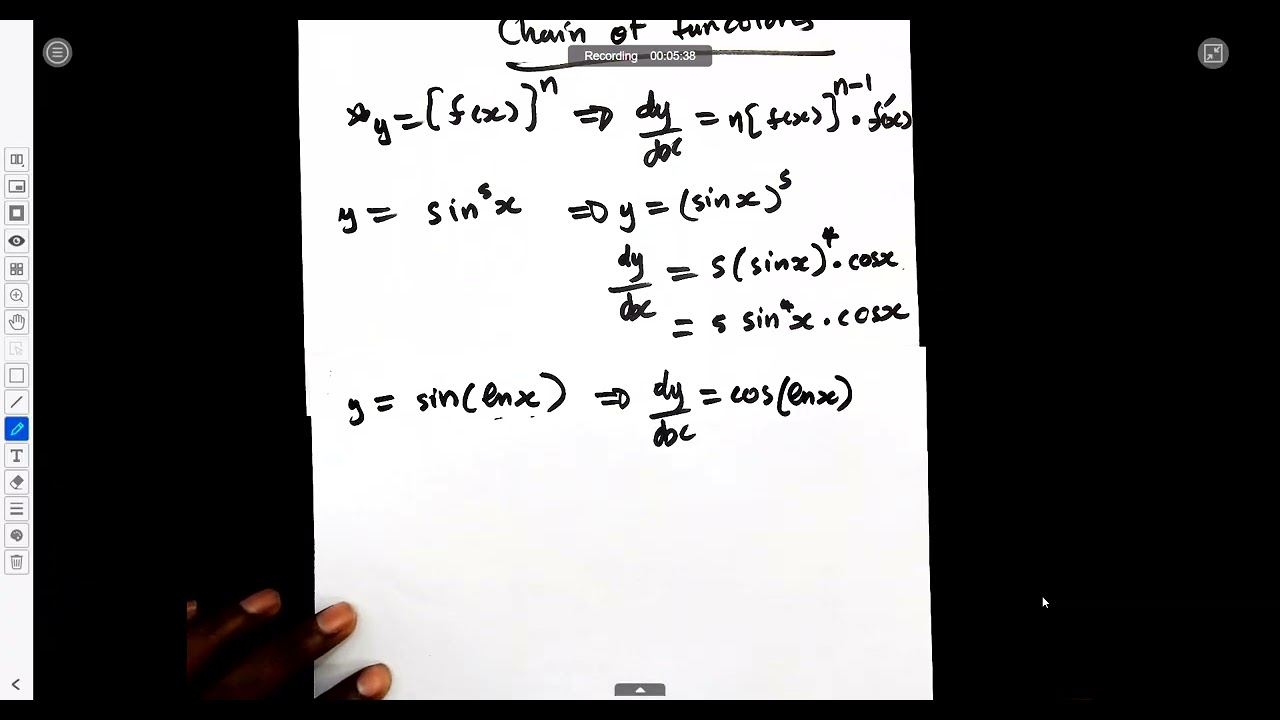 Chain of functions
Recording 00:05:38
* y = [f(x)]^n ⇒ dy/dx = n[f(x)]^{n-1} · f'(x)
y = sin⁵x ⇒ y = (sinx)⁵
dy/dx = 5(sinx)⁴ · cosx
= 5 sin⁴x · cosx
y = sin(lnx) ⇒ dy/dx = cos(lnx)
T